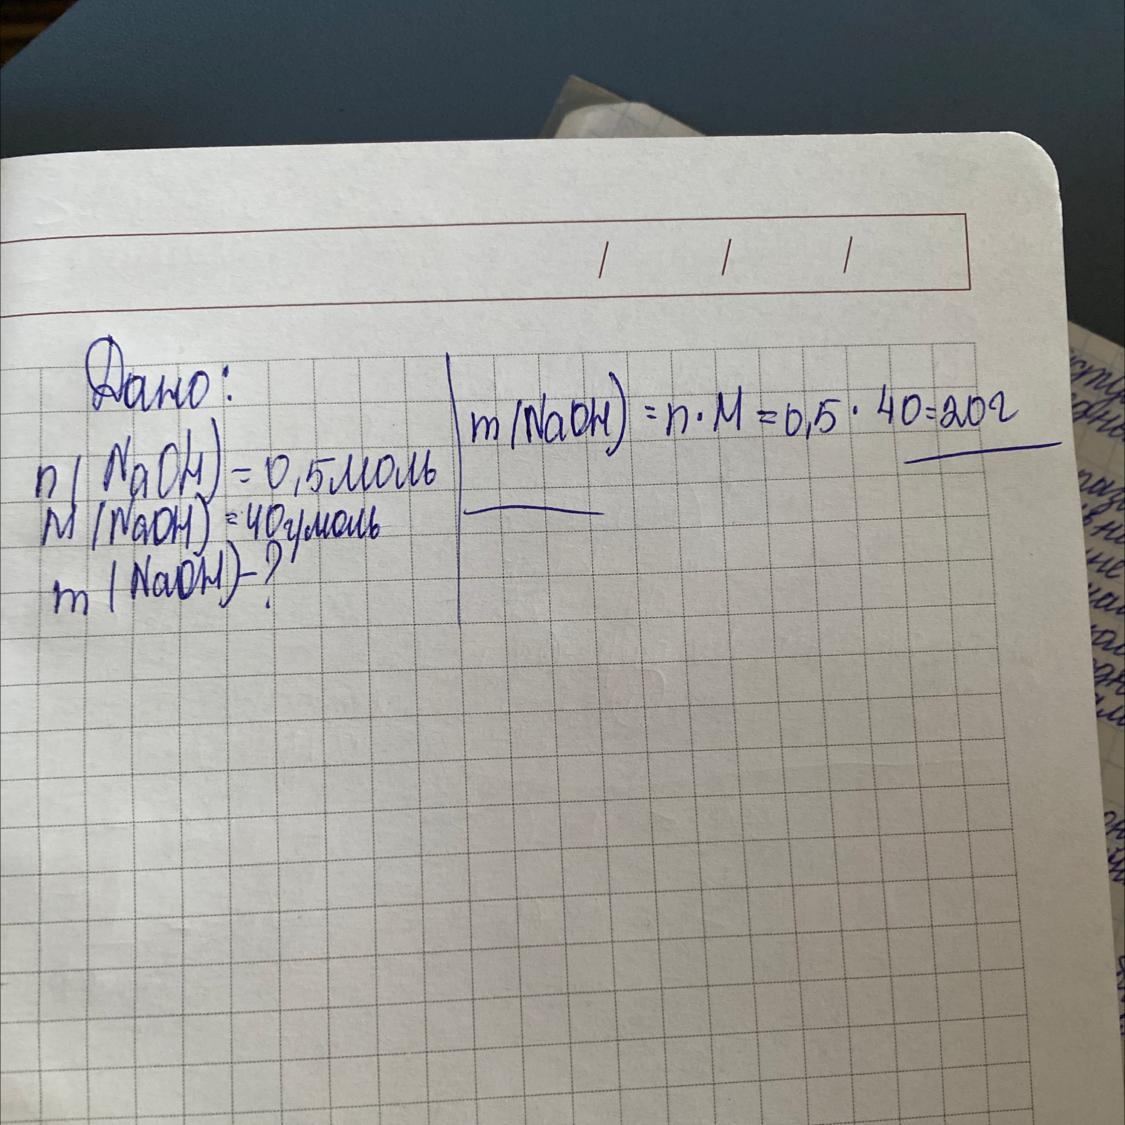 Дано:
n(NaOH) = 0,5 моль
M(NaOH) = 40г/моль
m(NaOH) - ?
m(NaOH) = n · M = 0,5 · 40 = 20г